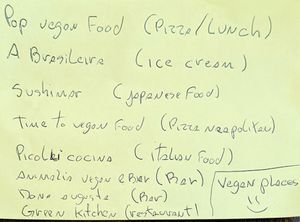 Pop vegan Food (Pizza/Lunch)
A Brasileira (ice cream)
Sushimar (Japanese Food)
Time to vegan Food (Pizza neapolitan)
cocina (italian Food)
Animalia vegan e Bar (Bar)
Dona augusta (Bar)
Green Kitchen (restaurant)
Vegan places